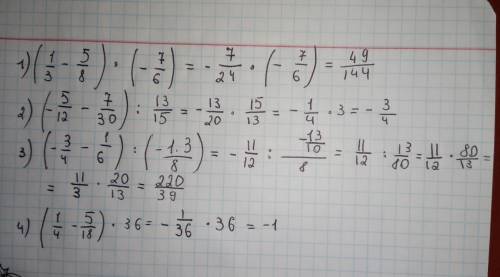 1) (1/3 - 5/8) · (- 7/6) = - 7/24 · (- 7/6) = 49/144
2) (- 5/12 - 7/30) : 13/15 = - 13/20 · 15/13 = - 1/4 · 3 = - 3/4
3) (- 3/4 - 1/6) : (- 1.3/8) = - 11/12 : (-13/10)/8 = 11/12 : 13/80 = 11/12 · 80/13 =
= 11/3 · 20/13 = 220/39
4) (1/4 - 5/18) · 36 = - 1/36 · 36 = -1